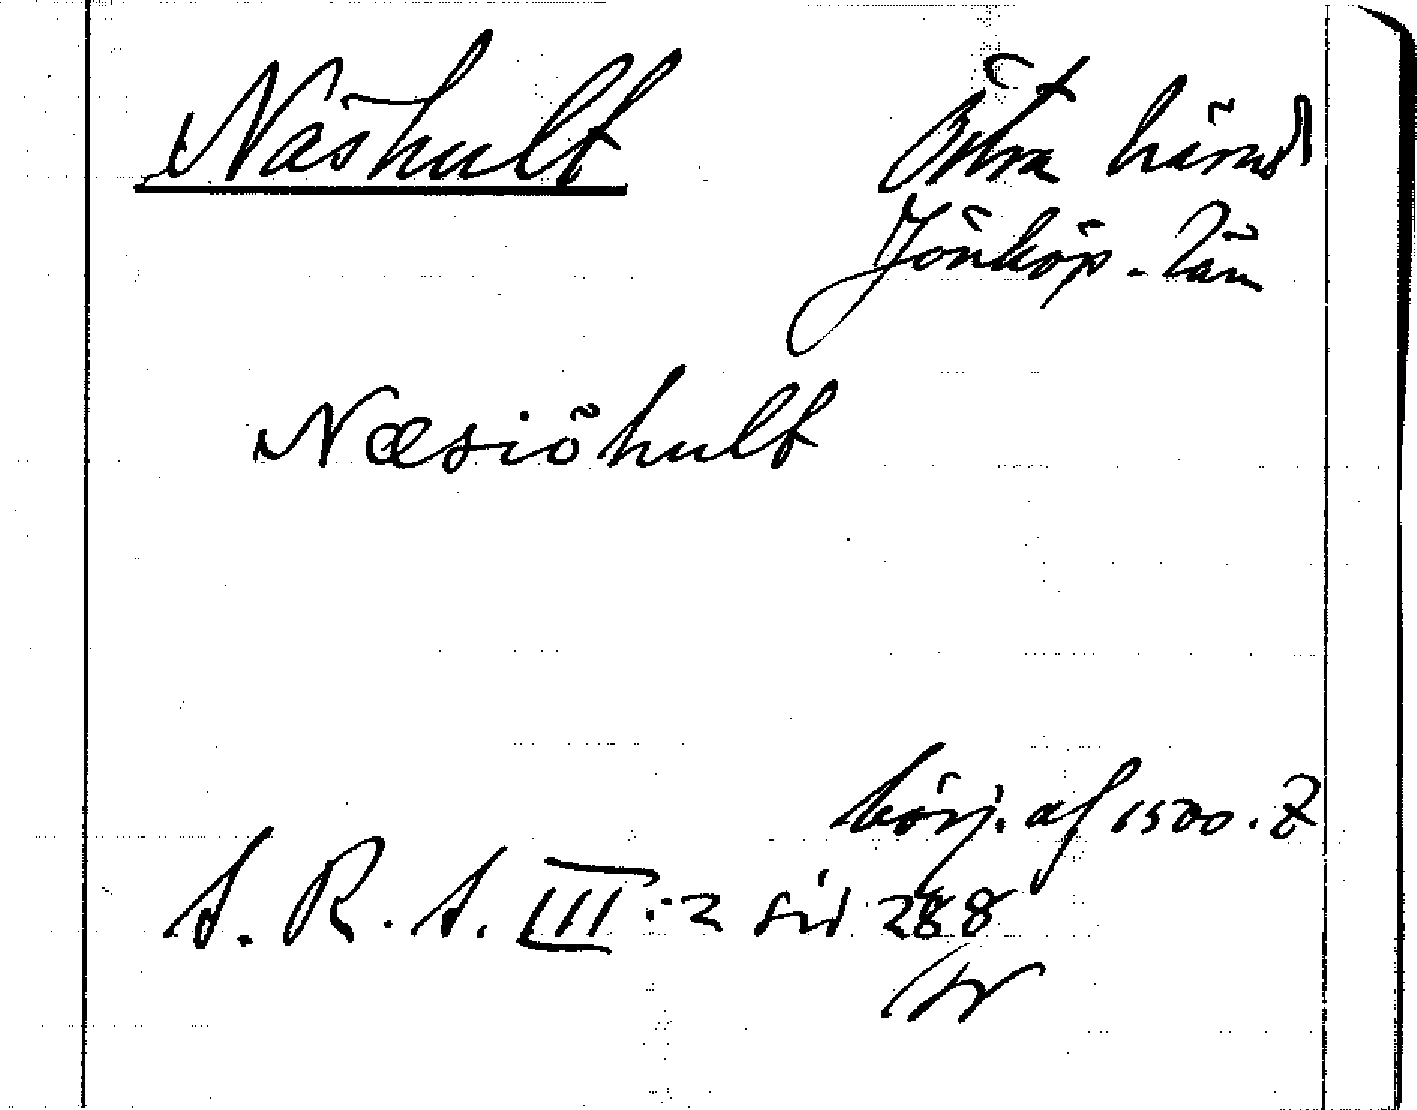 Näshult
Östra härad
Jönköp. län
Næsiöhult
börj. af 1500. t
S. R. A. III:2 sid 288